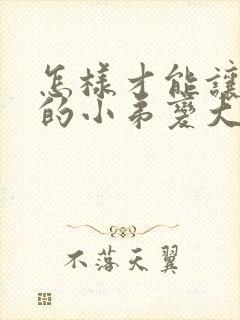 怎樣才能讓
的小弟變大
不落天翼